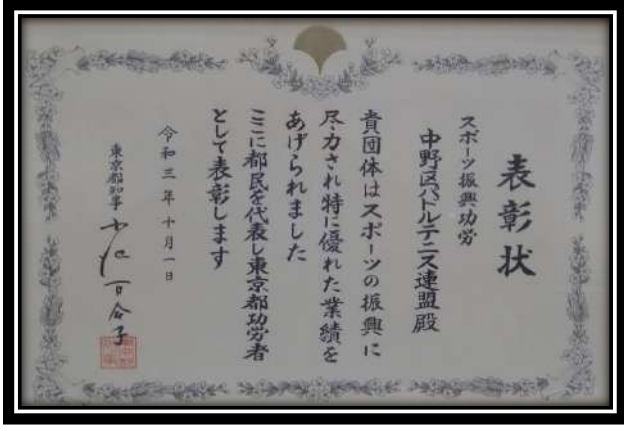 表彰状
スポーツ振興功労
中野区パドルテニス連盟殿
貴団体はスポーツの振興に
尽力され特に優れた業績を
あげられました
ここに都民を代表し東京都功労者
として表彰します
令和三年十月一日
東京都知事 小池百合子